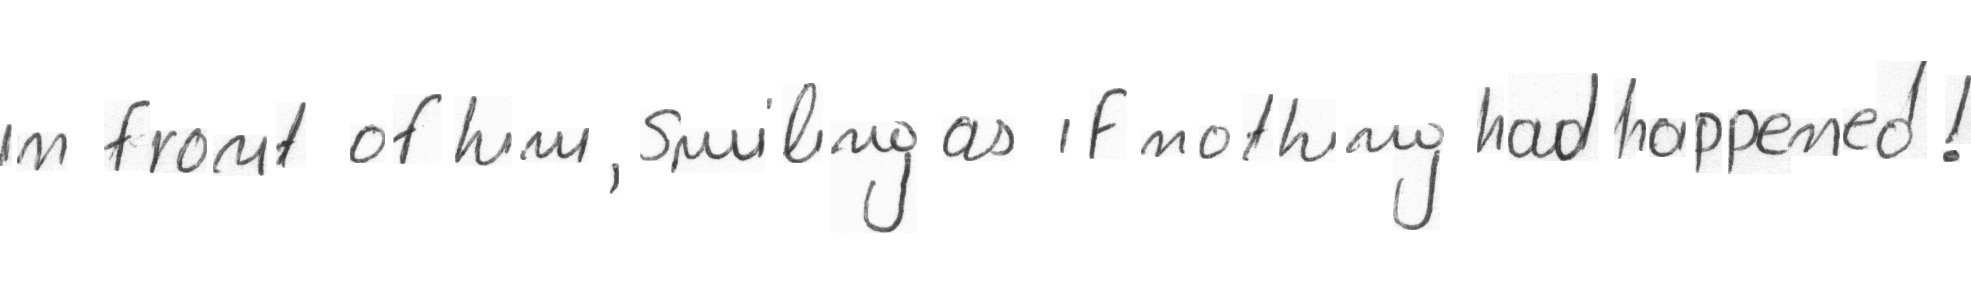 in front of him, smiling as if nothing had happened!